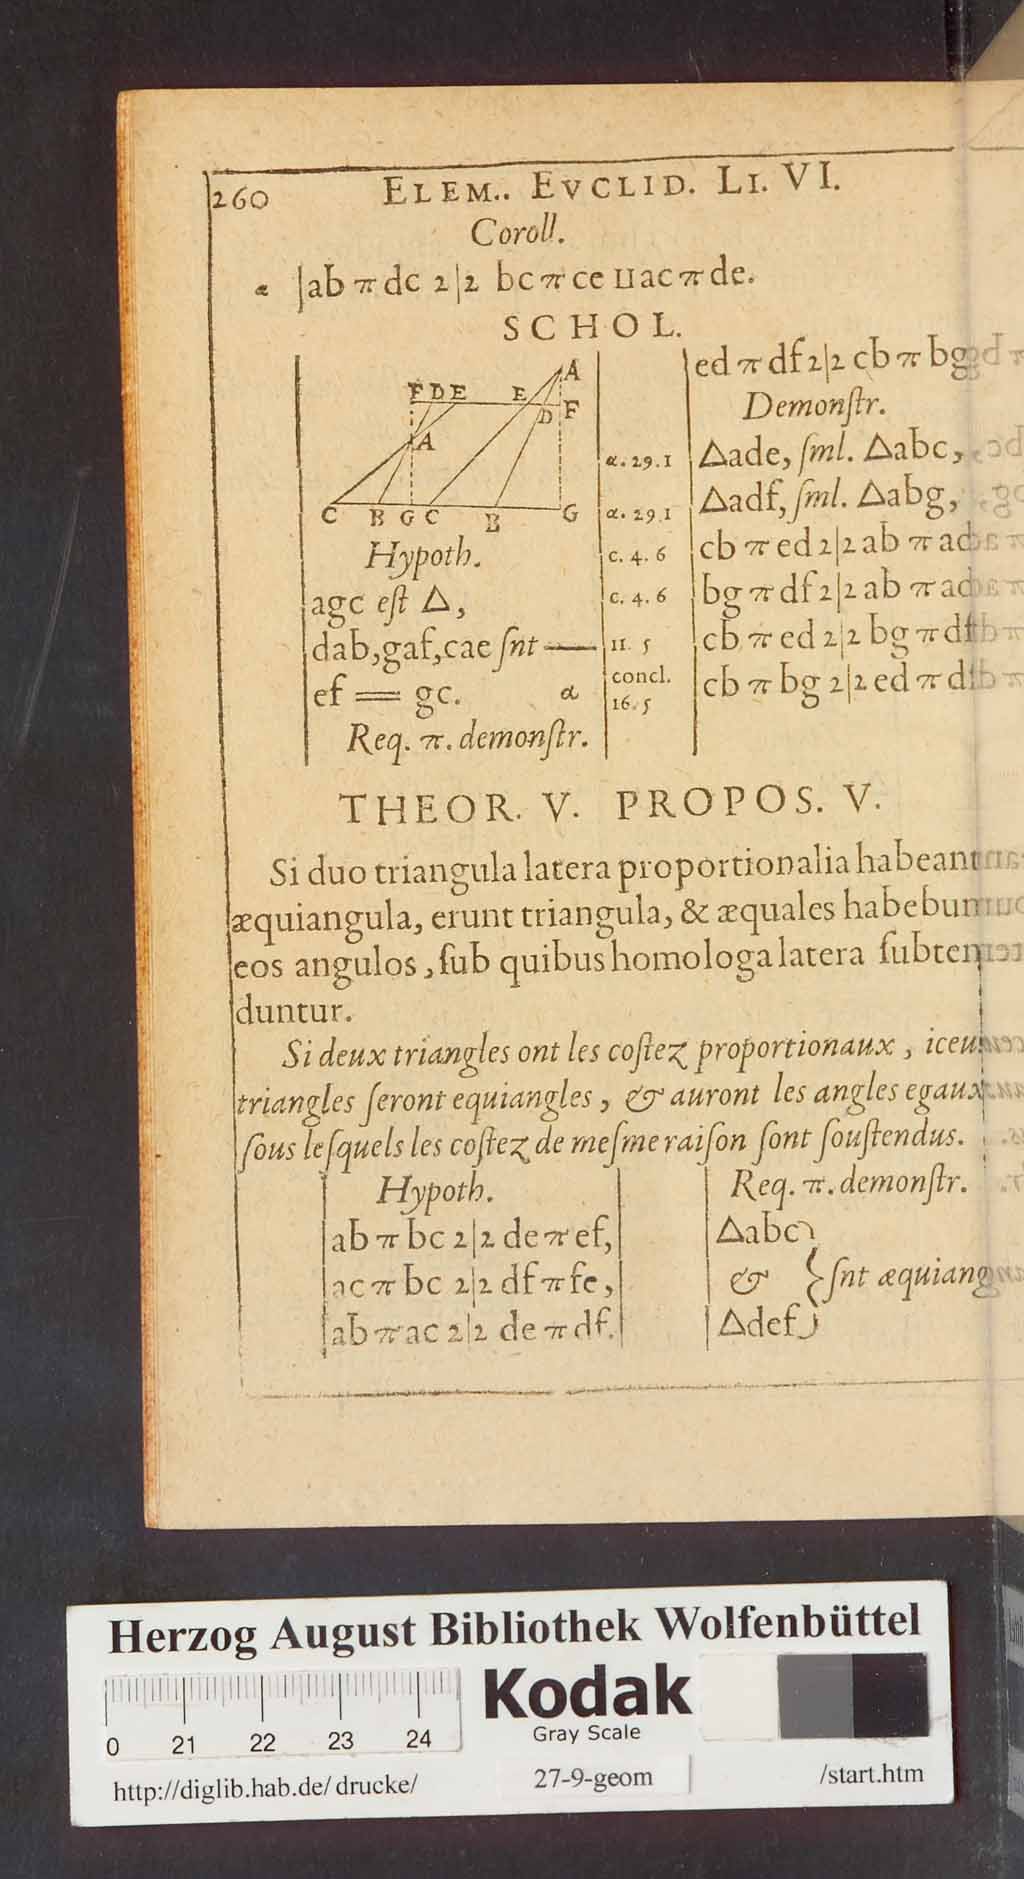 260 ELEM.. EVCLID. LI. VI.
Coroll.
α |ab π dc 2|2 bc π ce ⊔ ac π de.
SCHOL.
F D E E A
D F
A
C B G C B G
Hypoth.
agc eſt △,
dab, gaf, cae ſnt —
ef = gc. α
Req. π. demonſtr.
ed π df 2|2 cb π bg
Demonſtr.
α. 29. 1 △ade, ſml. △abc,
α. 29. 1 △adf, ſml. △abg,
c. 4. 6 cb π ed 2|2 ab π ad
c. 4. 6 bg π df 2|2 ab π ad
11. 5 cb π ed 2|2 bg π df
concl.
16. 5 cb π bg 2|2 ed π df
THEOR. V. PROPOS. V.
Si duo triangula latera proportionalia habeant
æquiangula, erunt triangula, & æquales habebunt
eos angulos, ſub quibus homologa latera ſubten
duntur.
Si deux triangles ont les coſtez proportionaux, iceux
triangles ſeront equiangles, & auront les angles egaux
ſous leſquels les coſtez de meſme raiſon ſont ſouſtendus.
Hypoth.
ab π bc 2|2 de π ef,
ac π bc 2|2 df π fe,
ab π ac 2|2 de π df.
Req. π. demonſtr.
△abc
& } ſnt æquiang
△def
Herzog August Bibliothek Wolfenbüttel
Kodak
Gray Scale
0 21 22 23 24
http://diglib.hab.de/drucke/ 27-9-geom /start.htm